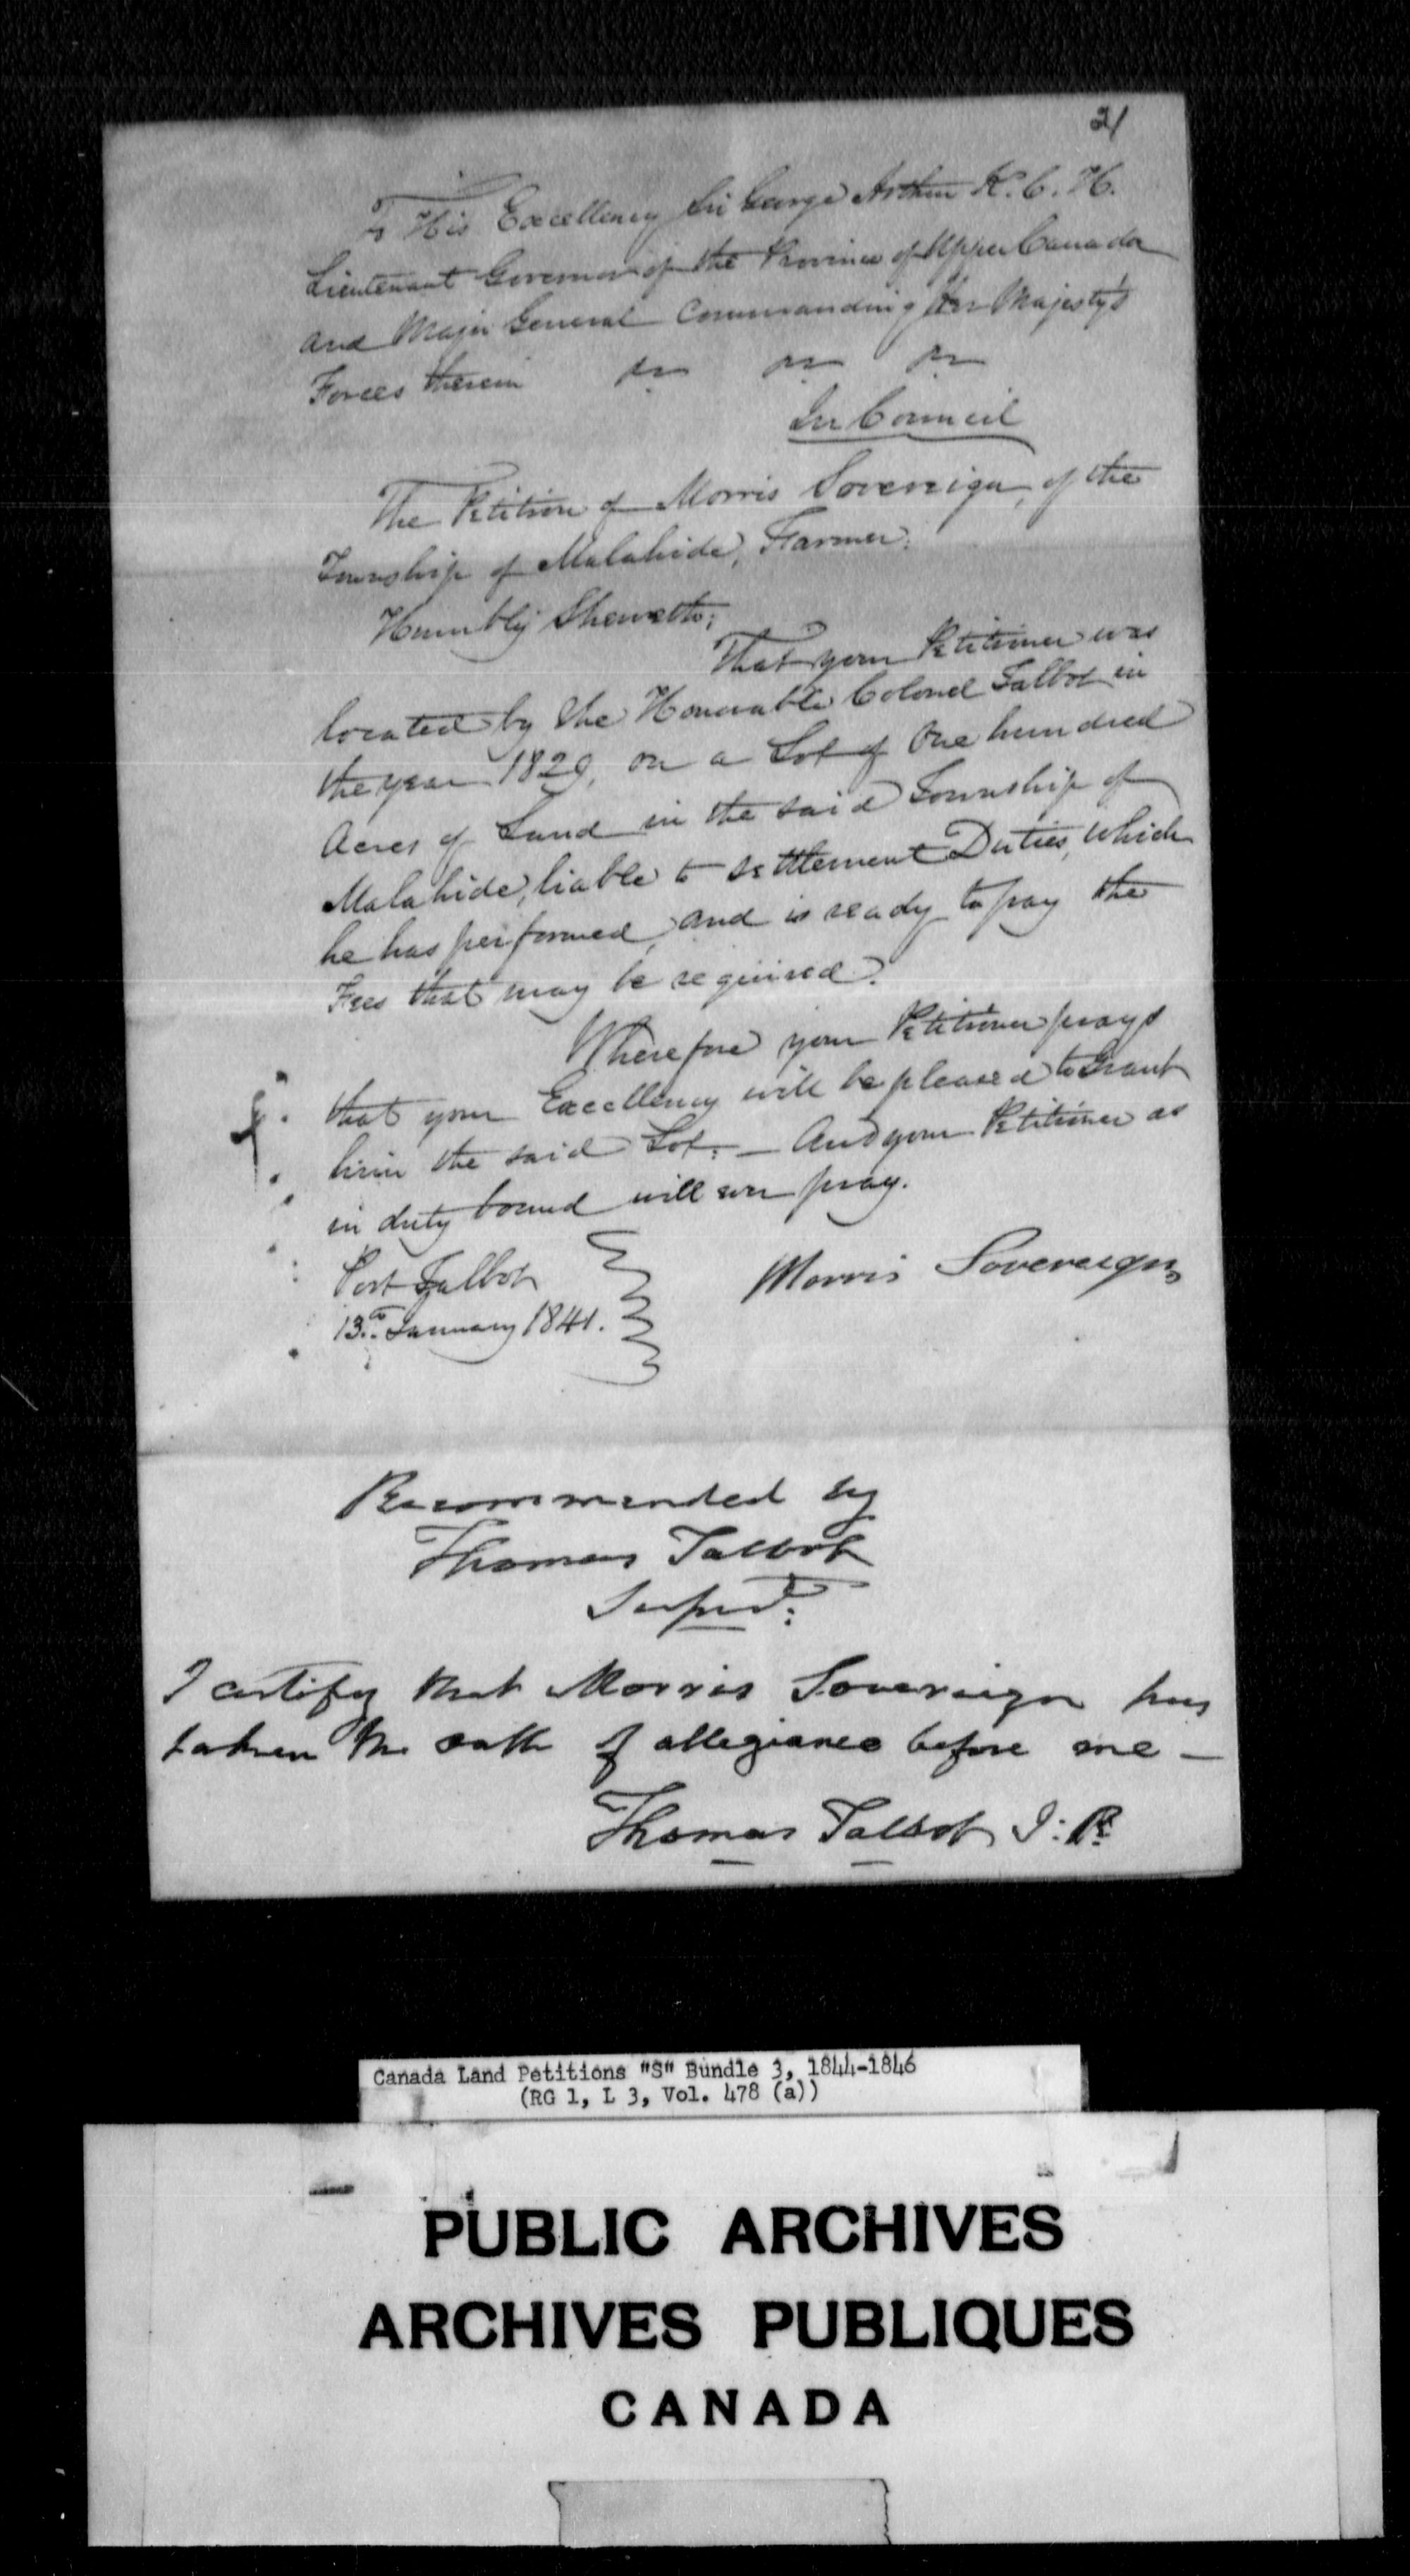 21
To His Excellency Sir George Arthur K.C.H.
Lieutenant Governor of the Province of Upper Canada
and Major General Commanding Her Majesty's
Forces therein
In Council
The Petition of Morris Sovereign, of the
Township of Malahide, Farmer.
Humbly Sheweth;
That your Petitioner was
located by the Honorable Colonel Talbot in
the year 1829, on a Lot of One hundred
Acres of Land in the said Township of
Malahide, liable to settlement Duties, which
he has performed, and is ready to pay the
Fees that may be required.
Wherefore your Petitioner prays
that your Excellency will be pleased to Grant
him the said Lot. — And your Petitioner as
in duty bound will ever pray.
Port Talbot
13th January 1841.
Morris Sovereign
Recommended by
Thomas Talbot
I certify that Morris Sovereign has
taken the oath of allegiance before me —
Thomas Talbot J:P.
Canada Land Petitions "S" Bundle 3, 1844-1846
(RG 1, L 3, Vol. 478 (a))
PUBLIC ARCHIVES
ARCHIVES PUBLIQUES
CANADA